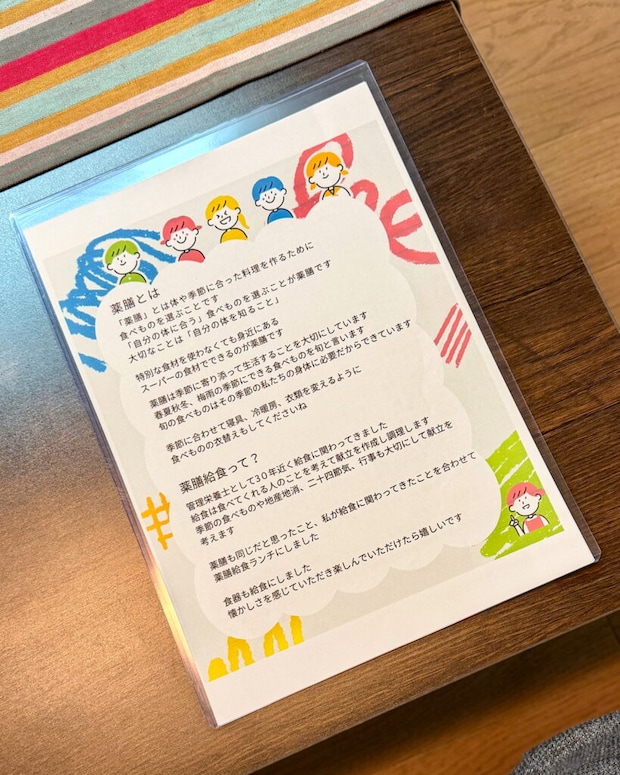 薬膳とは
「薬膳」とは体や季節に合った料理を作るために
食べものを選ぶことです
「自分の体に合う」食べものを選ぶことが薬膳です
大切なことは「自分の体を知ること」
特別な食材を使わなくても身近にある
スーパーの食材でできるのが薬膳です
薬膳は季節に寄り添って生活することを大切にしています
春夏秋冬、梅雨の季節にできる食べものを旬と言います
旬の食べものはその季節の私たちの身体に必要だからできています
季節に合わせて寝具、冷暖房、衣類を変えるように
食べものの衣替えもしてくださいね
薬膳給食って？
管理栄養士として30年近く給食に関わってきました
給食は食べてくれる人のことを考えて献立を作成し調理します
季節の食べものや地産地消、二十四節気、行事も大切にして献立を
考えます
薬膳も同じだと思ったこと、私が給食に関わってきたことを合わせて
薬膳給食ランチにしました
食器も給食にしました
懐かしさを感じていただき楽しんでいただけたら嬉しいです